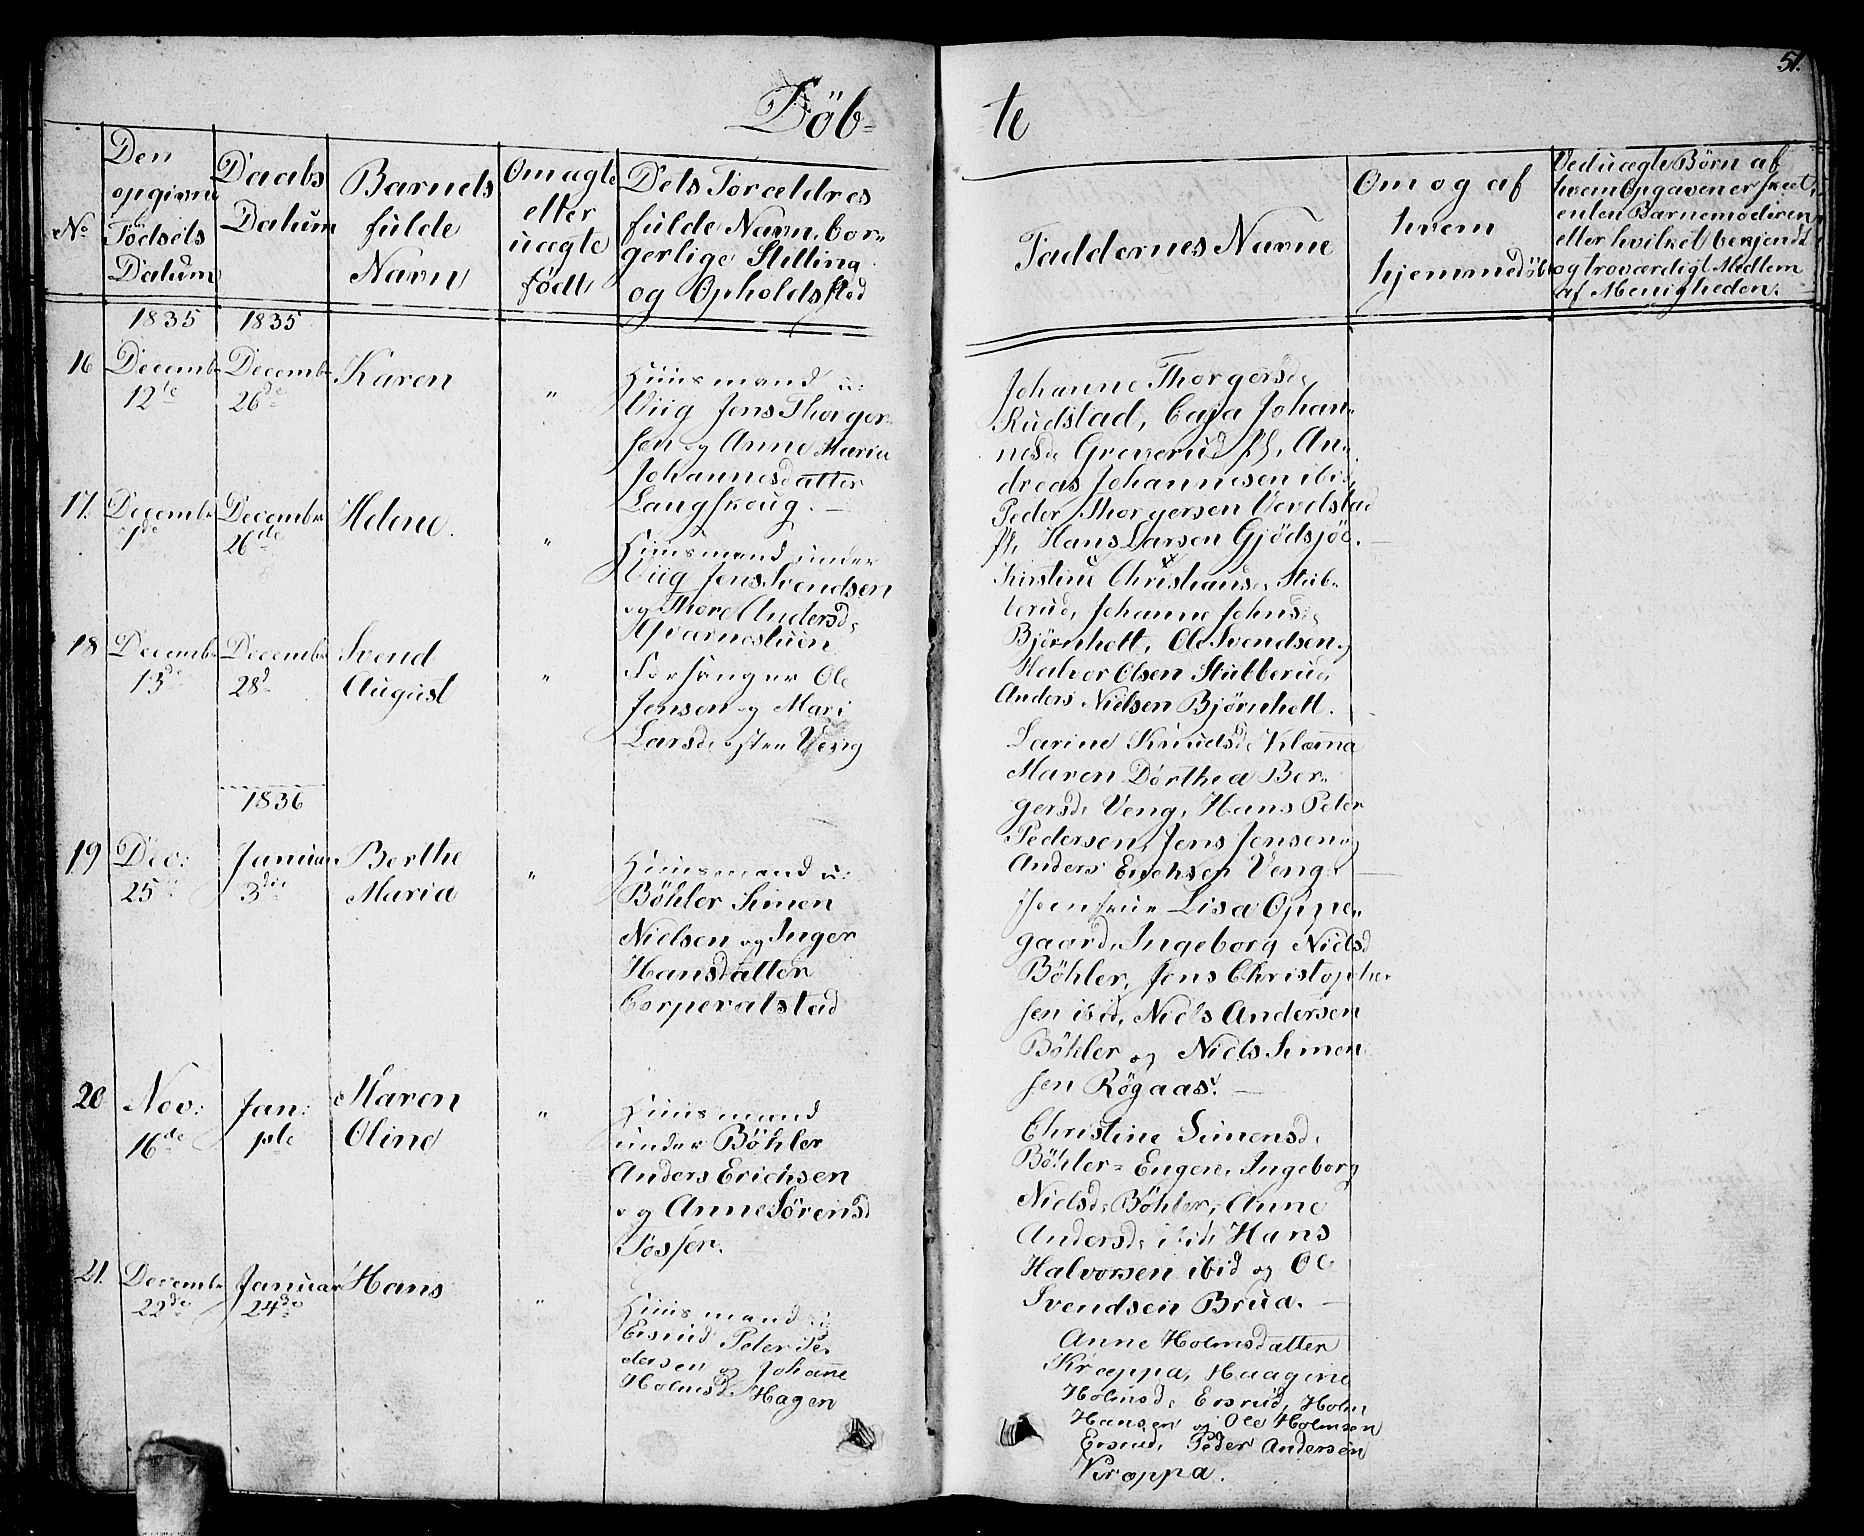 51.
Döb-
te
No
Den
opgivne
Födsels
Datum
Daabs
Datum
Barnets
fulde
Navn
Om ægte
eller
uægte
födt
Dets Forældres
fulde Navn, bor-
gerlige Stilling
og Opholdssted
Faddernes Navne
Om og af
hvem
hjemmedöbt
Ved uægte Børn af
hvem Opgaven er skeet,
enten Barnemoderen
eller hvilket bekjendt
og troværdigt Medlem
af Menigheden.
1835 1835
16
Decembr
12te
Decembr
26de
Karen
"
Huusmand u:
Viig Jens Thorger-
sen og Anne Maria
Johannesdatter
Langskoug. —
Johanne Thorgersd.
Rudstad, Caja Johan-
nesd. Greverud fl, An-
dreas Johannesen ibi.
Peder Thorgersen Vevelstad
fl. Hans Larsen Gjödsjöe. —
17.
Decembr
Decembr
26de
Helene.
"
Huusmand under
Viig Jens Svendsen
og Thore Andersd.
Kirstine Christians. Stub-
berud, Johanne Johnsd.
Bjørnholt, Ole Svendsen,
Halvor Olsen Stubberud,
Anders Nielsen Bjørnholt.
18
Decembr
13de
Decembr
28d
Svend
August
"
Forsanger Ole
Jensen og Mari
Larsd. østre Veng
Larine Knudsd. Klæma
Maren Dorthea Ber-
gersd. Veng, Hans Peter
Pedersen, Jens Jensen og
Anders Erichsen Veng. —
1836
19
Dec:
25
Januar
3die
Berthe
Maria
"
Huusmand u:
Böhler Simen
Nielsen og Inger
Hansdatter
Corperalstad
Lisa Oppe-
gaard, Ingeborg Nielsd
Böhler, Jens Christopher-
sen ibid, Niels Andersen
Böhler og Niels Simen
sen Røgaas. —
20
Nov:
16de
Jan:
1ste
Maren
Oline
"
Huusmand
under Böhler
Anders Erichsen
og Anne Sörensd
Fosser.
Christine Simensd.
Böhler-Engen, Ingeborg
Nielsd. Böhler, Anne
Andersd. ibid, Hans
Halvorsen ibid og Ole
Svendsen Brua. —
21.
Decembr
22de
Januar
24de
Hans
"
Huusmand u:
Ersrud Peter Pe
dersen og Johanne
Holmsd. Hagen
Anne Holmsdatter
Kræppa, Haagine
Holmsd. Ersrud, Holm
Hansen og Ole Holmsen
Ersrud, Peder Andersen
Kræppa.